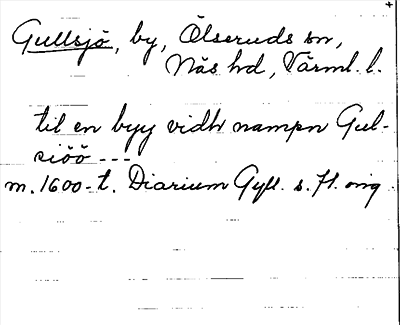 Gullsjö, by, Ölseruds sn,
Näs hd, Värml. l.
til en byy vidh nampn Gul-
siöö ---
m. 1600-t. Diarium Gyll. s. 71. orig